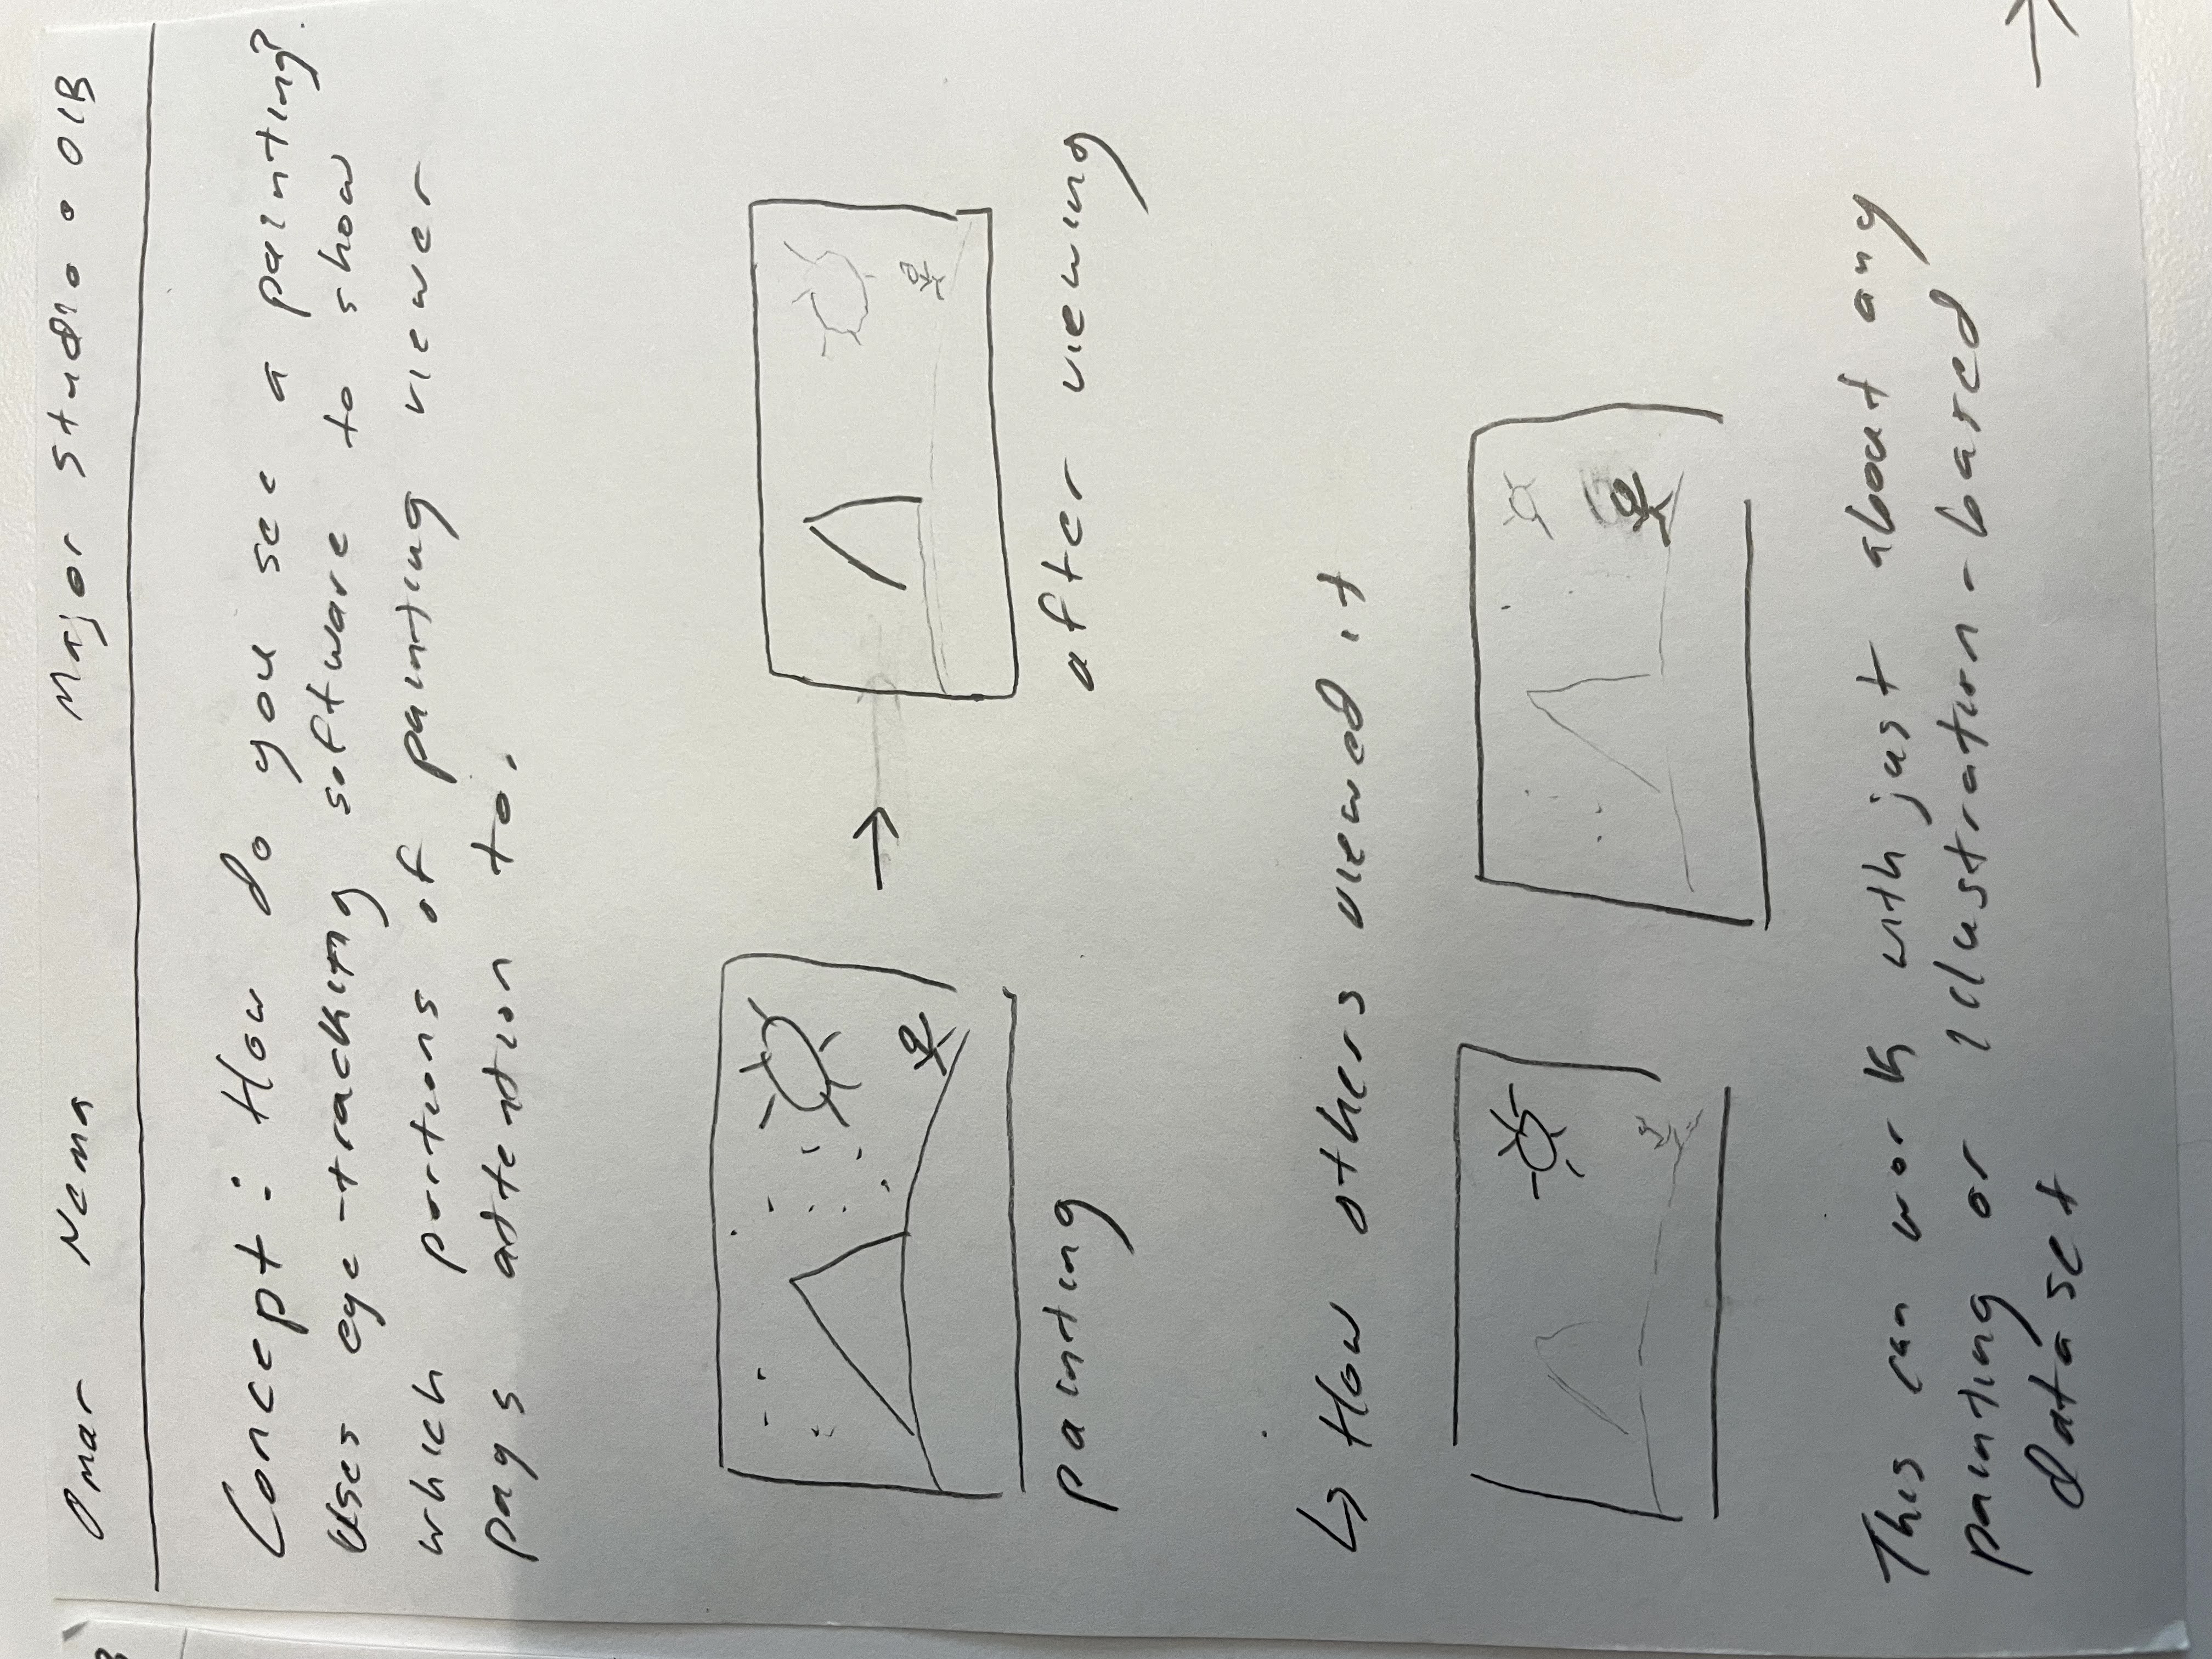 Omar Nema Major Studio • 01B
Concept: How do you see a painting?
Uses eye-tracking software to show
which portions of painting viewer
pays attention to.
→
painting after viewing
↳ How others viewed it
This can work with just about any
painting or illustration-based
dataset →